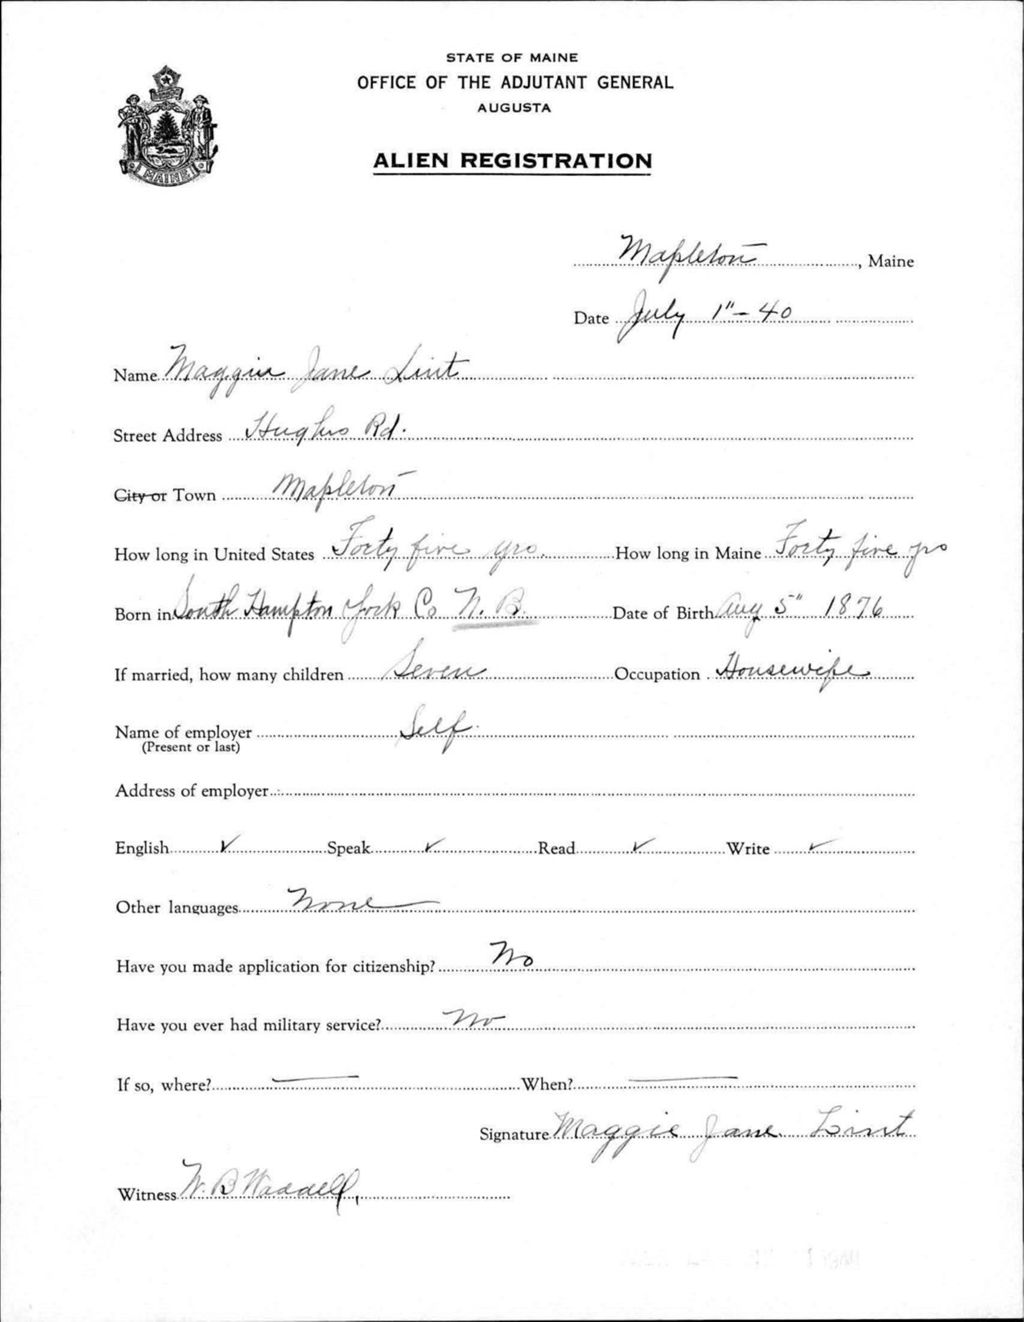 STATE OF MAINE
OFFICE OF THE ADJUTANT GENERAL
AUGUSTA
ALIEN REGISTRATION
MAINE
Mapleton, Maine
Date July 1" - 40
Name Maggie Jane Lint
Street Address Hughes Rd.
City or Town Mapleton
How long in United States Forty five yrs. How long in Maine Forty five yrs
Born in South Hampton York Co N. B. Date of Birth Aug 5" 1876
If married, how many children Seven Occupation Housewife
Name of employer Self.
(Present or last)
Address of employer
English ✓ Speak ✓ Read ✓ Write ✓
Other languages None
Have you made application for citizenship? No
Have you ever had military service? No
If so, where? — When? —
Signature Maggie Jane Lint
Witness W. B Waddell,